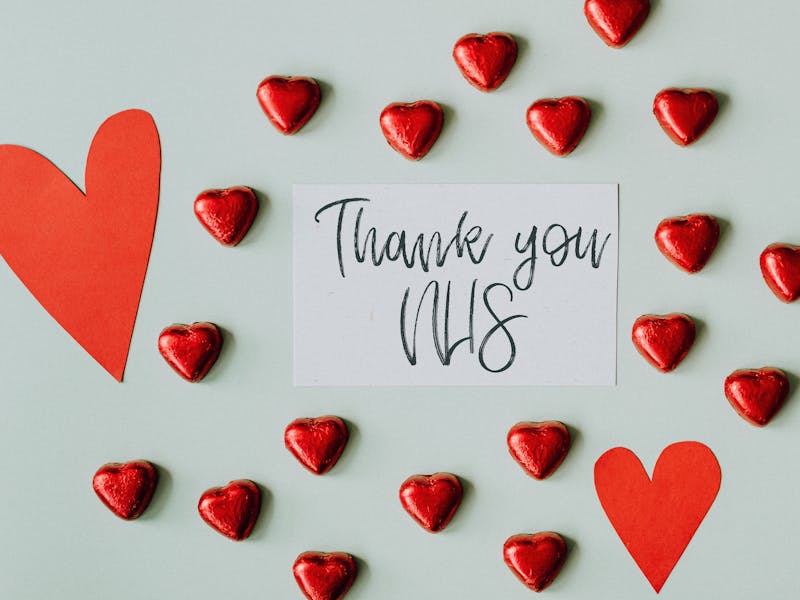 Thank you
NHS